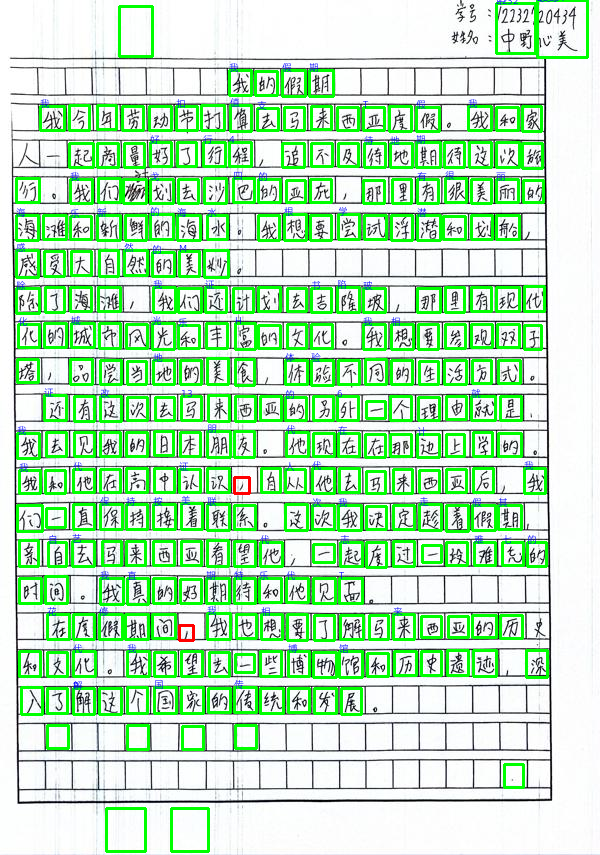 学号：1223220434
姓名：中野心美
我的假期
我今年劳动节打算去马来西亚度假。我和家
人一起商量好了行程，迫不及待地期待这次旅
行。我们计划去沙巴的亚庇，那里有很美丽的
海滩和新鲜的海水。我想要尝试浮潜和划船，
感受大自然的美妙。
除了海滩，我们还计划去吉隆坡，那里有现代
化的城市风光和丰富的文化。我想要参观双子
塔，品尝当地的美食，体验不同的生活方式。
还有这次去马来西亚的另外一个理由就是，
我去见我的日本朋友。他现在在那边上学的。
我和他在高中认识，自从他去马来西亚后，我
们一直保持按着联系。这次我决定趁着假期，
亲自去马来西亚看望他，一起度过一段难忘的
时间。我真的好期待和他见面。
在度假期间，我也想要了解马来西亚的历史
和文化。我希望去一些博物馆和历史遗迹，深
入了解这个国家的传统和发展。